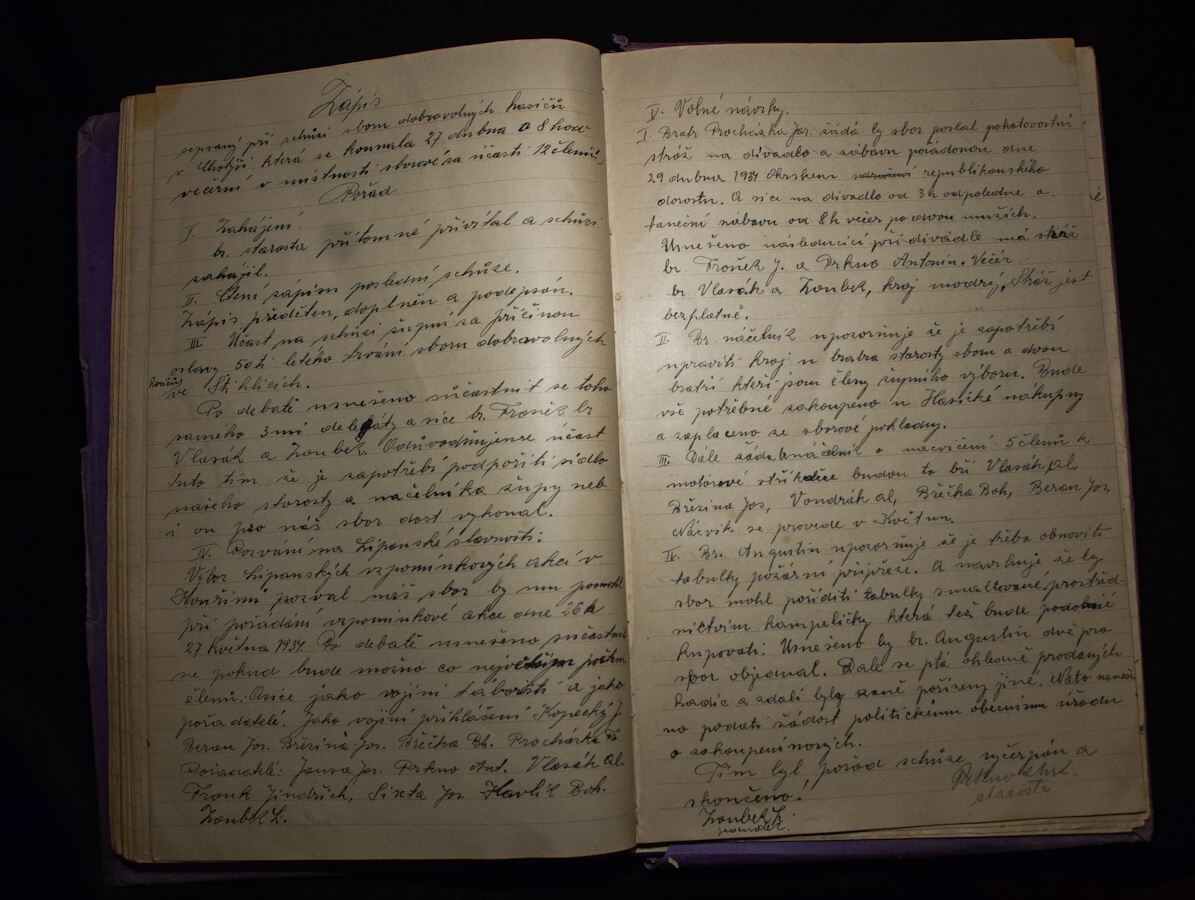 Zápis
sepsaný při schůzi sboru dobrovolných hasičů
v Chotýši která se konala 27 dubna o 8 hod
večerní v místnosti sborové za účasti 12 členů.
Pořad
I. Zahájení.
br. starosta přítomné přivítal a schůzi
zahájil.
II. Čtení zápisu poslední schůze.
Zápis předčten, doplněn a podepsán.
III. Účast na schůzi župní za příčinou
oslavy 50ti letého trvání sboru dobrovolných
hasičů ve
Po debatě usneseno súčastnit se toho
samého 3mi delegáty a sice br. Froněk br
Vlasák a Zoubek. Odůvodňujeme účast
tuto tím že je zapotřebí podpořiti sídlo
našeho starosty a náčelníka župy neb
i on pro náš sbor dost vykonal.
IV. Pozvání na Lipanské slavnosti.
Výbor Lipanských vzpomínkových akcí v
Kouřimi pozval náš sbor by mu pomohl
při pořádání vzpomínkové akce dne 26 a
27 května 1934. Po debatě usneseno súčastnit
se pokud bude možno co největším počtem
členů. Asice jako vojíni táborští a jako
pořadatelé. Jako vojíni přihlášeni Kopecký J.
Beran Jos. Březina Jos. Břečka Boh. Procházka
Pořadatelé: Jansa Jos. Prkno Ant. Vlasák Al.
Froněk Jindřich, Sixta Jos. Havlík Boh.
Zoubek L.
V. Volné návrhy.
I. Bratr Procházka Jos. žádá by sbor poslal pohotovostní
stráž na divadlo a zábavu pořádanou dne
29 dubna 1934 Okrskem republikánského
dorostu. A sice na divadlo od 3 h odpoledne a
taneční zábavu od 8 h večer po dvou mužích.
Usneseno následující při divadle má stráž
br. Froněk J. a Prkno Antonín. Večer
br Vlasák a Zoubek, kroj modrý. Stráž jest
bezplatně.
II. Br. náčelník upozorňuje že je zapotřebí
upraviti kroj u bratra starosty sboru a dvou
bratří kteří jsou členy župního výboru. Bude
vše potřebné zakoupeno u Hasičské nákupny
a zaplaceno ze sborové pokladny.
III. Dále žádá náčelník o nacvičení 5 členů k
motorové stříkačce budou to bří Vlasák Al.
Březina Jos, Vondrák Al, Břečka Boh, Beran Jos,
Nácvik se provede v Květnu.
IV. Br. Augustin upozorňuje že je třeba obnoviti
tabulky požární přípřeže. A navrhuje že by
sbor mohl poříditi tabulky smaltované prostřed-
nictvím kampeličky která též bude podobné
kupovati. Usneseno by br. Augustin dvě pro
sbor objednal. Dále se ptá ohledně prodaných
hadic a zdali byly zaně pořízeny jiné. Nato
no podati žádost politickému obecnímu úřadu
o zakoupení nových.
Tím byl pořad schůze vyčerpán a
skončeno.
Zoubek L.
jednatel.
Prkno Ant.
starosta